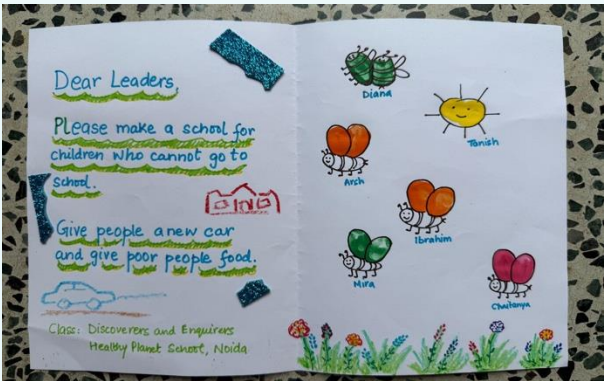 Dear Leaders,
Please make a school for
children who cannot go to
school.
Give people a new car
and give poor people food.
Class: Discoverers and Enquirers
Healthy Planet School, Noida
Diana
Tanish
Arsh
Ibrahim
Mira
Chaitanya